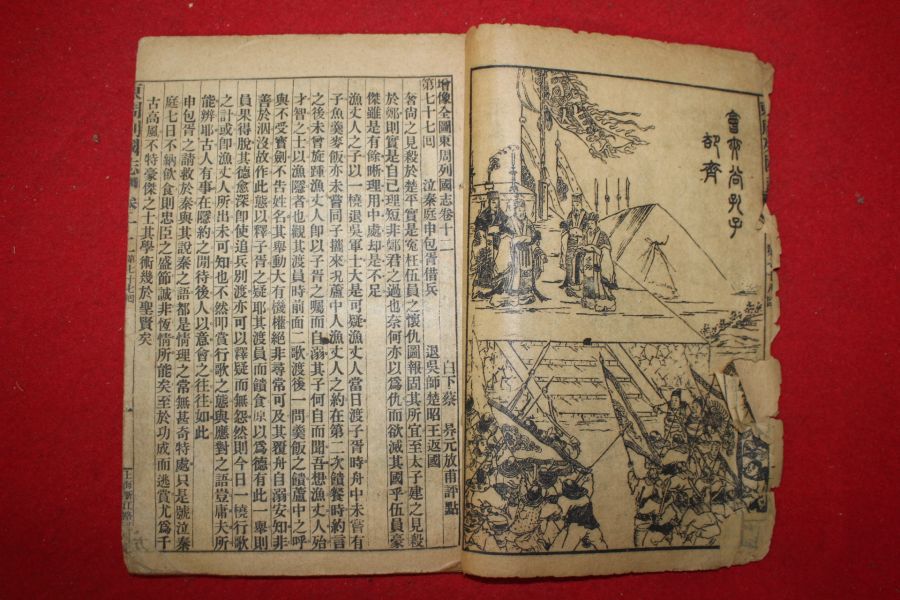 會夾谷孔子
却齊
增像全圖東周列國志卷十二 白下蔡昇元放甫評點
第七十七回 泣秦庭申包胥借兵 退吳師楚昭王返國
奢尙之見殺於楚平實是寃枉伍員之懷仇圖報固其所宜至太子建之見殺
於鄭則實是自己理短非鄭君之過也奈何亦以爲仇而欲滅其國乎伍員豪
傑雖是有餘晰理用中處却是不足
漁丈人之子以一橈退吳軍士大是可疑漁丈人當日渡子胥時舟中未嘗有
子魚羮麥飯亦未嘗同子攜來況蘆中人漁丈人之約在第二次饋餐時約言
之後未曾旋踵漁丈人卽以子胥之囑而自溺其子何自而聞吾想漁丈人殆
才智之士以漁隱者也觀其渡員時前面二歌渡後一問羮飯之饋蘆中之呼
與不受寳劍不吿姓名其舉動大有機權絕非尋常可及其覆舟自溺安知非
善於泅沒故作此態以釋子胥之疑耶其渡員而饋食原以爲德有此一舉則
員果得脫其德愈深卽使追兵別渡亦可以釋疑而無怨然則今日一橈行歌
之計或卽漁丈人所出未可知也不然叩賞行歌之態與應對之語豈庸夫所
能辨耶古人有事在隱約之閒待後人以意會之往往如此
申包胥之請救於秦與其說秦之語都是情理之常無甚奇特處只是號泣秦
庭七日不納飲食則忠臣之盛節誠非恆情所能矣至於功成而逃賞尤爲千
古高風不特豪傑之士其學術幾於聖賢矣
東周列國志 卷十二 第七十七回